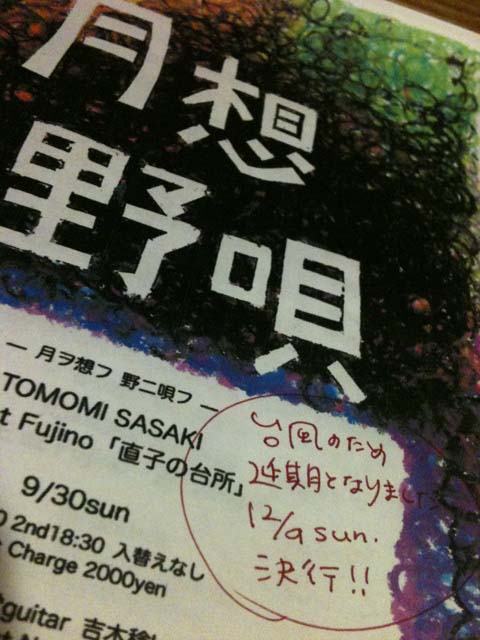 月想
野唄
— 月ヲ想フ 野ニ唄フ —
TOMOMI SASAKI
t Fujino「直子の台所」
9/30sun
2nd18:30 入替えなし
Charge 2000yen
guitar 吉木
台風のため
延期となりました
12/9 sun.
決行!!